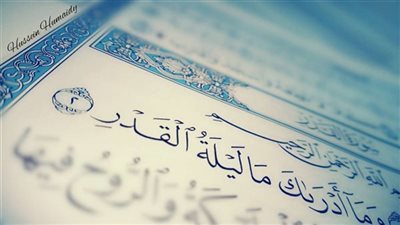 Hussein Humaidy
سورة القدر
الله الرحمن الرحيم
وَمَآ أَدْرَىٰكَ مَا لَيْلَةُ ٱلْقَدْرِ ٢
وَٱلرُّوحُ فِيهَا